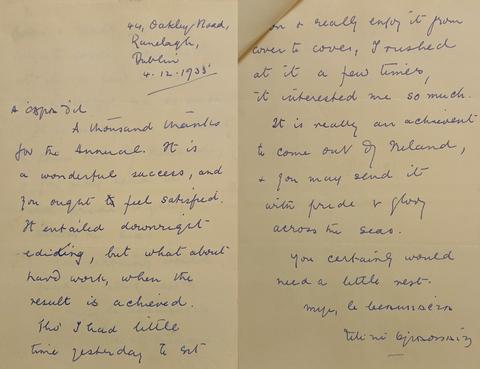 44, Oakley Road,
Ranelagh,
Dublin
4.12.1935
A
A thousand thanks
for the Annual. It is
a wonderful success, and
you ought to feel satisfied.
It entailed downright
editing, but what about
hard work, when the
result is achieved.
Tho' I had little
time yesterday to sit
on & really enjoy it from
cover to cover, I rushed
at it a few times,
it interested me so much.
It is really an achievement
to come out of Ireland,
& you may send it
with pride & glory
across the seas.
You certainly would
need a little rest.
mise, le